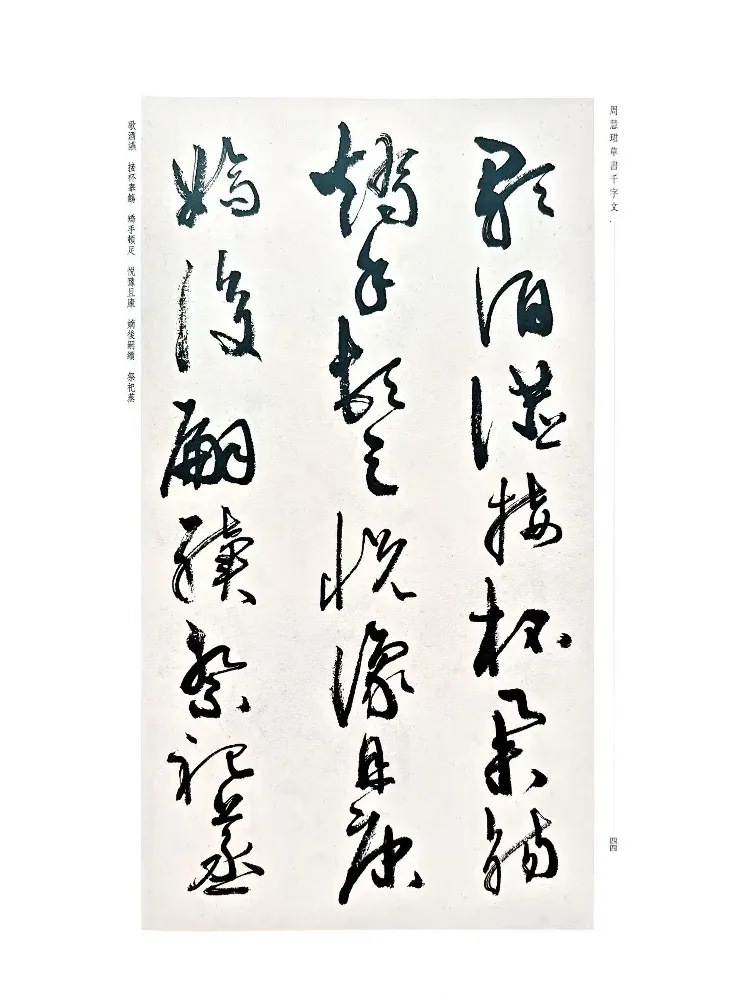 周慧珺草書千字文
四四
歌酒讌接杯舉觴
矯手頓足悅豫且康
嫡後嗣續祭祀蒸
歌酒讌 接杯舉觴 矯手頓足 悅豫且康 嫡後嗣續 祭祀蒸